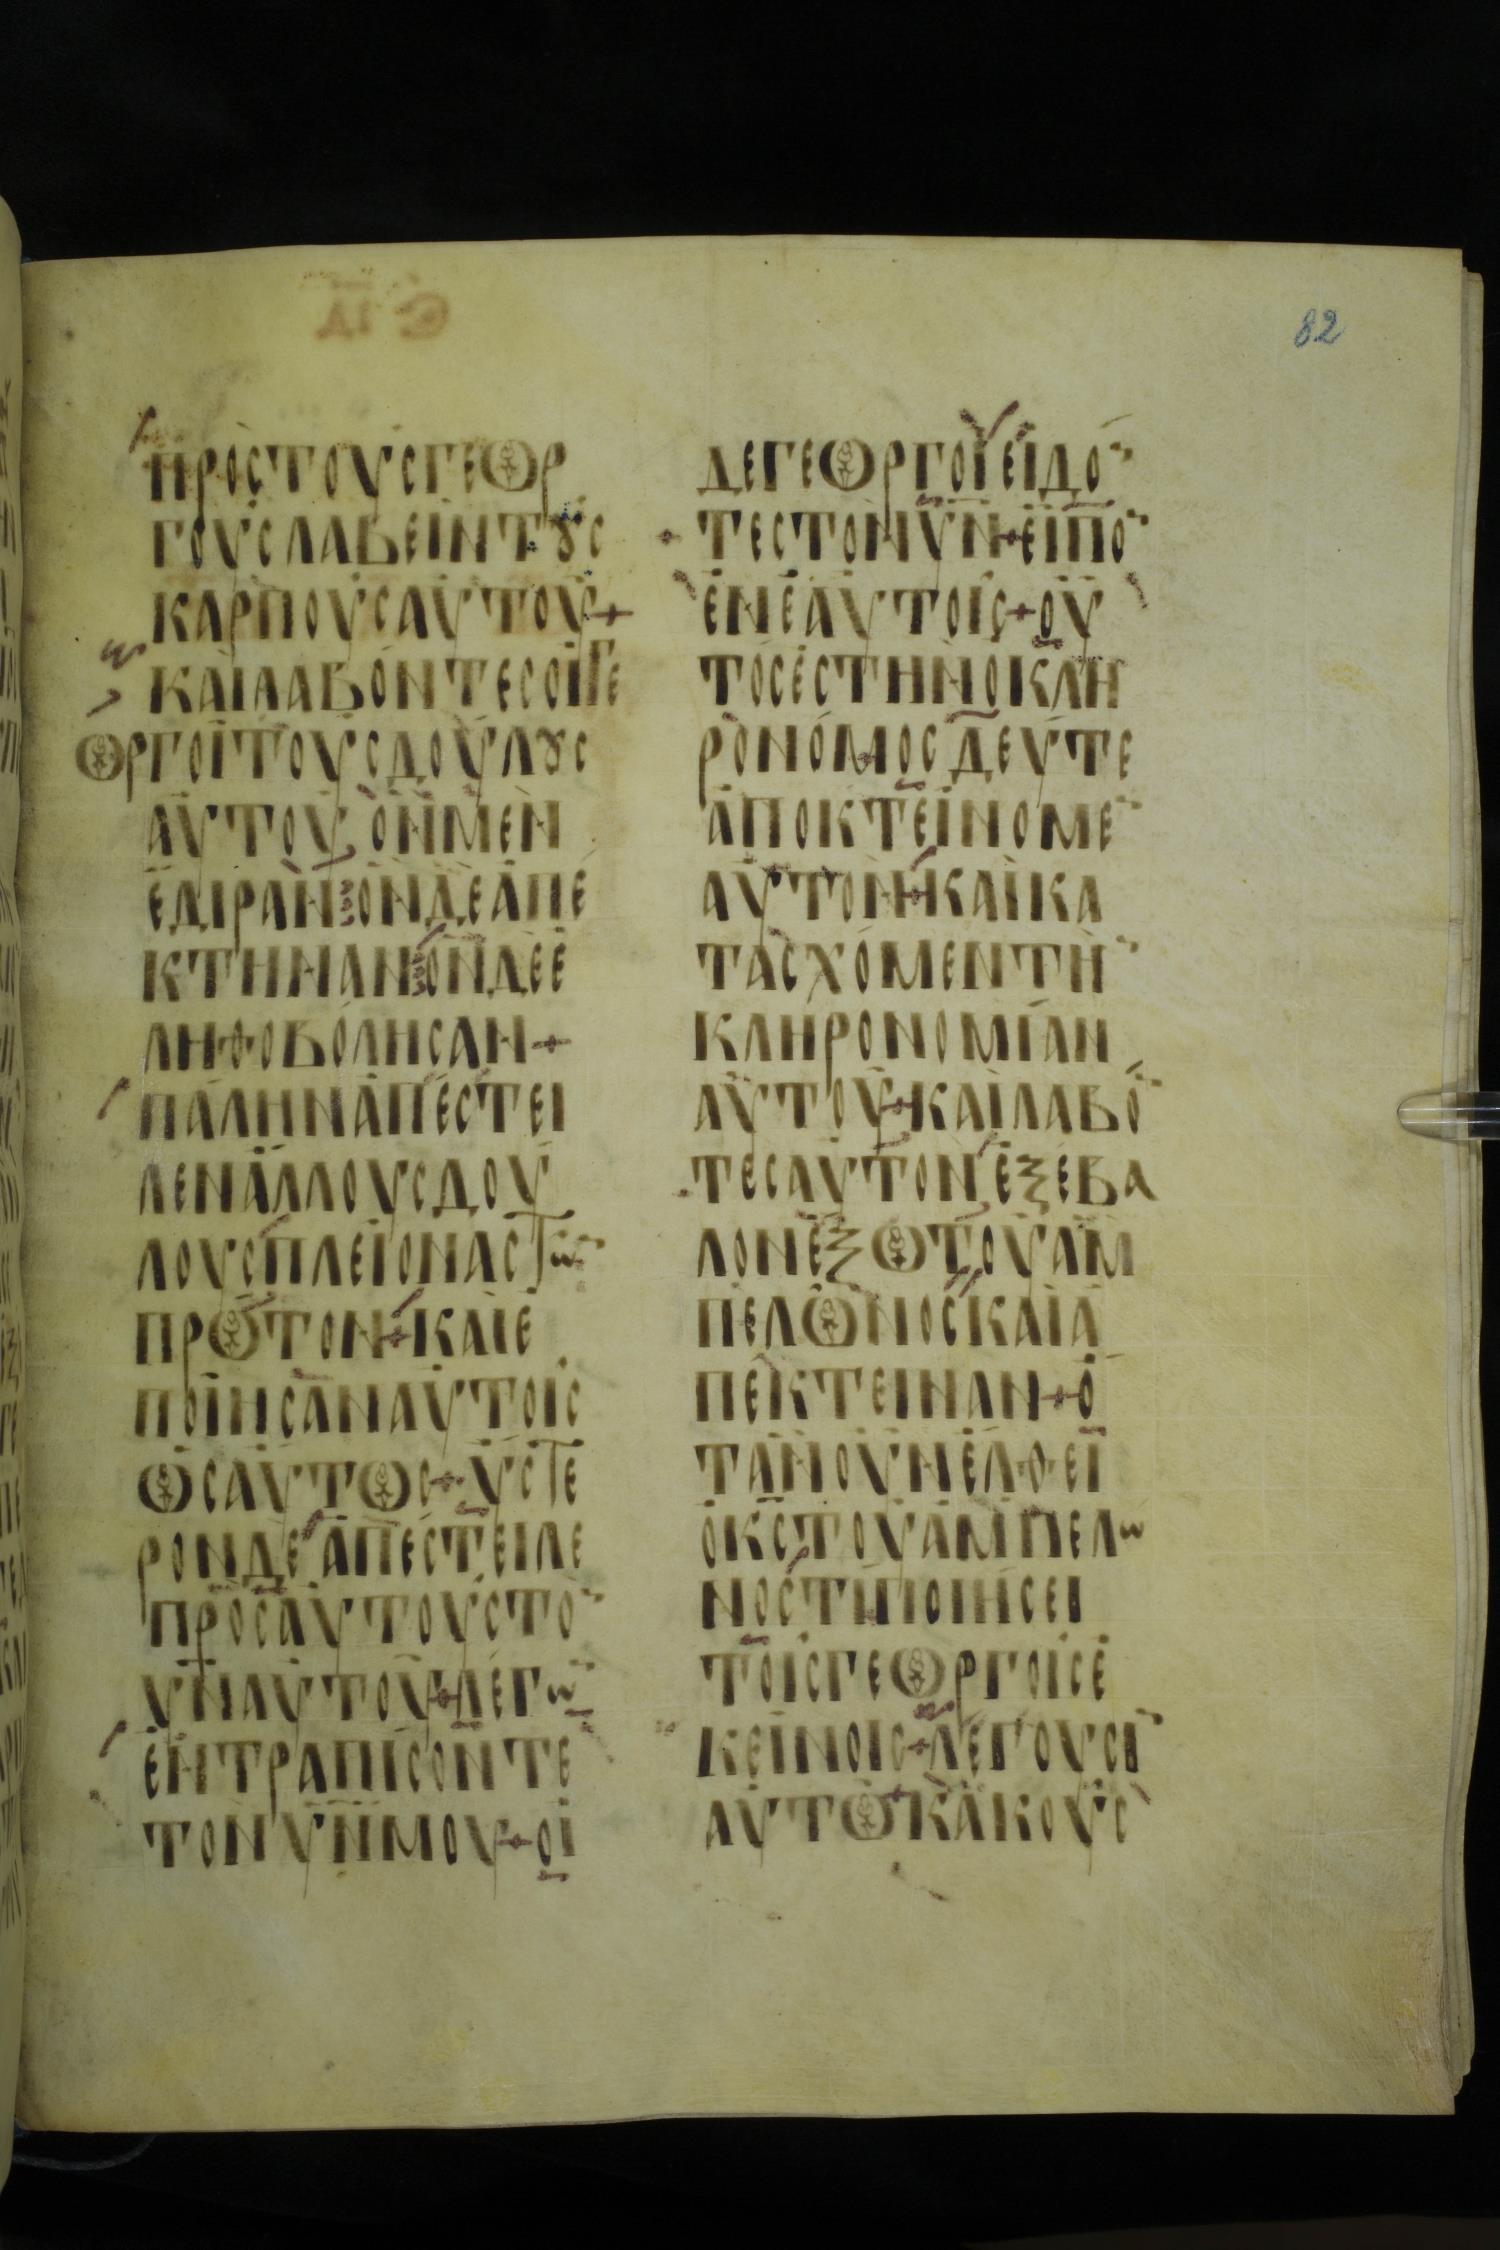 82
ΠΡΟΣΤΟΥΣΓΕΩΡ
ΓΟΥΣΛΑΒΕΙΝΤȢΣ
ΚΑΡΠΟΥΣΑΥΤΟΥ+
ΚΑΙΛΑΒΟΝΤΕΣΟΙΓΕ
ΩΡΓΟΙΤΟΥΣΔΟΥΛȢΣ
ΑΥΤΟΥ ΟΝΜΕΝ
ΕΔΙΡΑΝ ΟΝΔΕΑΠΕ
ΚΤΗΝΑΝ ΟΝΔΕΕ
ΛΗΘΟΒΟΛΗΣΑΝ+
ΠΑΛΗΝΑΠΕΣΤΕΙ
ΛΕΝΑΛΛΟΥΣΔΟΥ
ΛΟΥΣΠΛΕΙΟΝΑΣΤῶ
ΠΡΩΤΟΝ+ΚΑΙΕ
ΠΟΙΗΣΑΝΑΥΤΟΙΣ
ΩΣΑΥΤΩΣ+ΥΣΤΕ
ΡΟΝΔΕΑΠΕΣΤΕΙΛΕ
ΠΡΟΣΑΥΤΟΥΣΤΟ̄
ΥΝΑΥΤΟΥ+ΛΕΓῶ
ΕΝΤΡΑΠΙΣΟΝΤΕ
ΤΟΝΥΝΜΟΥ+ΟΙ
ΔΕΓΕΩΡΓΟΙΕΙΔΟ̄
ΤΕΣΤΟΝΥΝ+ΕΙΠΟ̄
ΕΝΕΑΥΤΟΙΣ+ΟΥ
ΤΟΣΕΣΤΗΝΟΚΛΗ
ΡΟΝΟΜΟΣΔΕΥΤΕ
ΑΠΟΚΤΕΙΝΟΜΕ̄
ΑΥΤΟΝ+ΚΑΙΚΑ
ΤΑΣΧΟΜΕΝΤΗ̄
ΚΛΗΡΟΝΟΜΙΑΝ
ΑΥΤΟΥ+ΚΑΙΛΑΒΟ̄
ΤΕΣΑΥΤΟΝΕΞΕΒΑ
ΛΟΝΕΞΩΤΟΥΑΜ
ΠΕΛΩΝΟΣΚΑΙΑ
ΠΕΚΤΕΙΝΑΝ+Ο
ΤΑΝΟΥΝΕΛΘΕΙ
ΟΚΣΤΟΥΑΜΠΕΛω
ΝΟΣΤΙΠΟΙΗΣΕΙ
ΤΟΙΣΓΕΩΡΓΟΙΣΕ
ΚΕΙΝΟΙΣ+ΛΕΓΟΥΣῙ
ΑΥΤΩ+ΚΑΚΟΥΣ